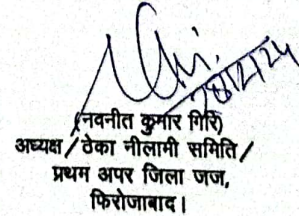 (नवनीत कुमार गिरि)
अध्यक्ष/ठेका नीलामी समिति/
प्रथम अपर जिला जज,
फिरोजाबाद।